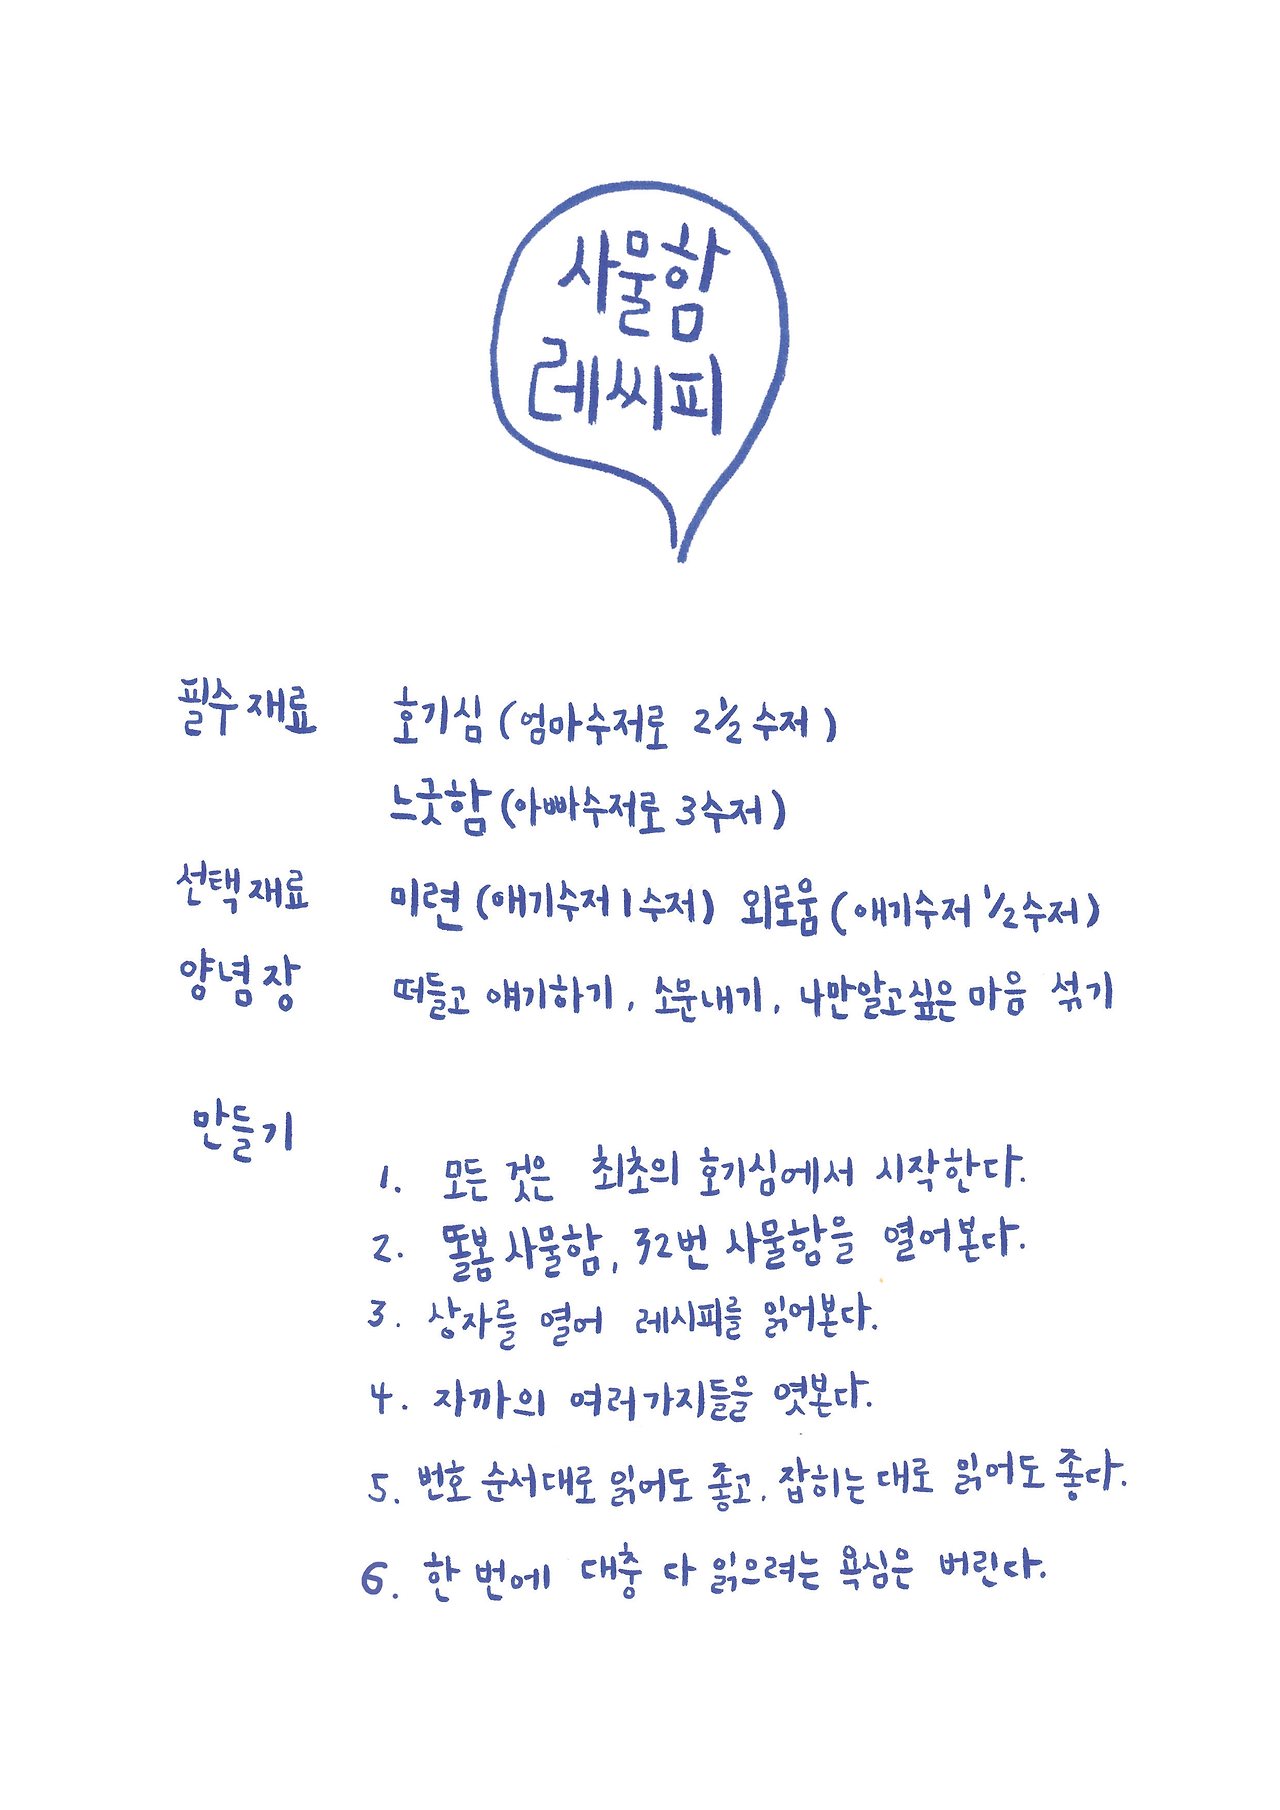 사물함
레씨피
필수재료 호기심 (엄마수저로 2½ 수저)
느긋함 (아빠수저로 3수저)
선택재료 미련 (애기수저 1수저) 외로움 (애기수저 ½수저)
양념장 떠들고 얘기하기, 소문내기, 나만알고싶은 마음 섞기
만들기
1. 모든 것은 최초의 호기심에서 시작한다.
2. 똘봄 사물함, 32번 사물함을 열어본다.
3. 상자를 열어 레시피를 읽어본다.
4. 자까의 여러가지들을 엿본다.
5. 번호 순서대로 읽어도 좋고, 잡히는 대로 읽어도 좋다.
6. 한 번에 대충 다 읽으려는 욕심은 버린다.